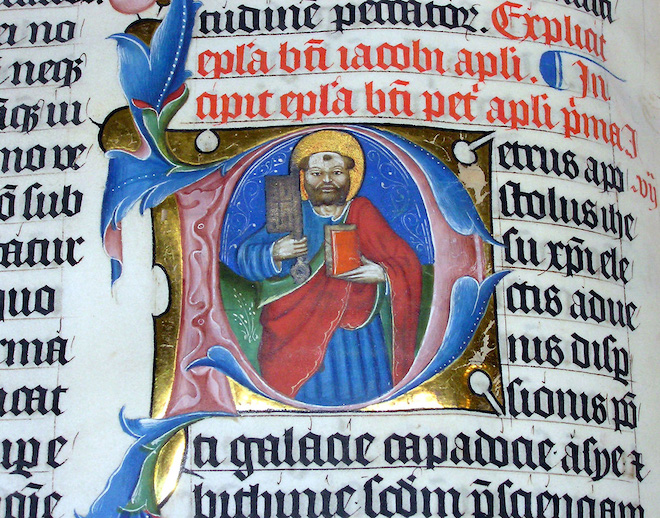 ei no
neqꝫ
no ve
ō sub
quo
rma
icat
tudinē peccatoꝝ. Explicit
epl'a bt̄i iacobi apl'i. In
cipit epl'a bt̄i pet' apl'i p'ma I
vij
Petrus apo
stolus ihe
su xp̄i ele
ctis adue
nis disꝑ
sionis pō
ti galacie capadocie asye ⁊
bithinie scd̄m p̄scienciam